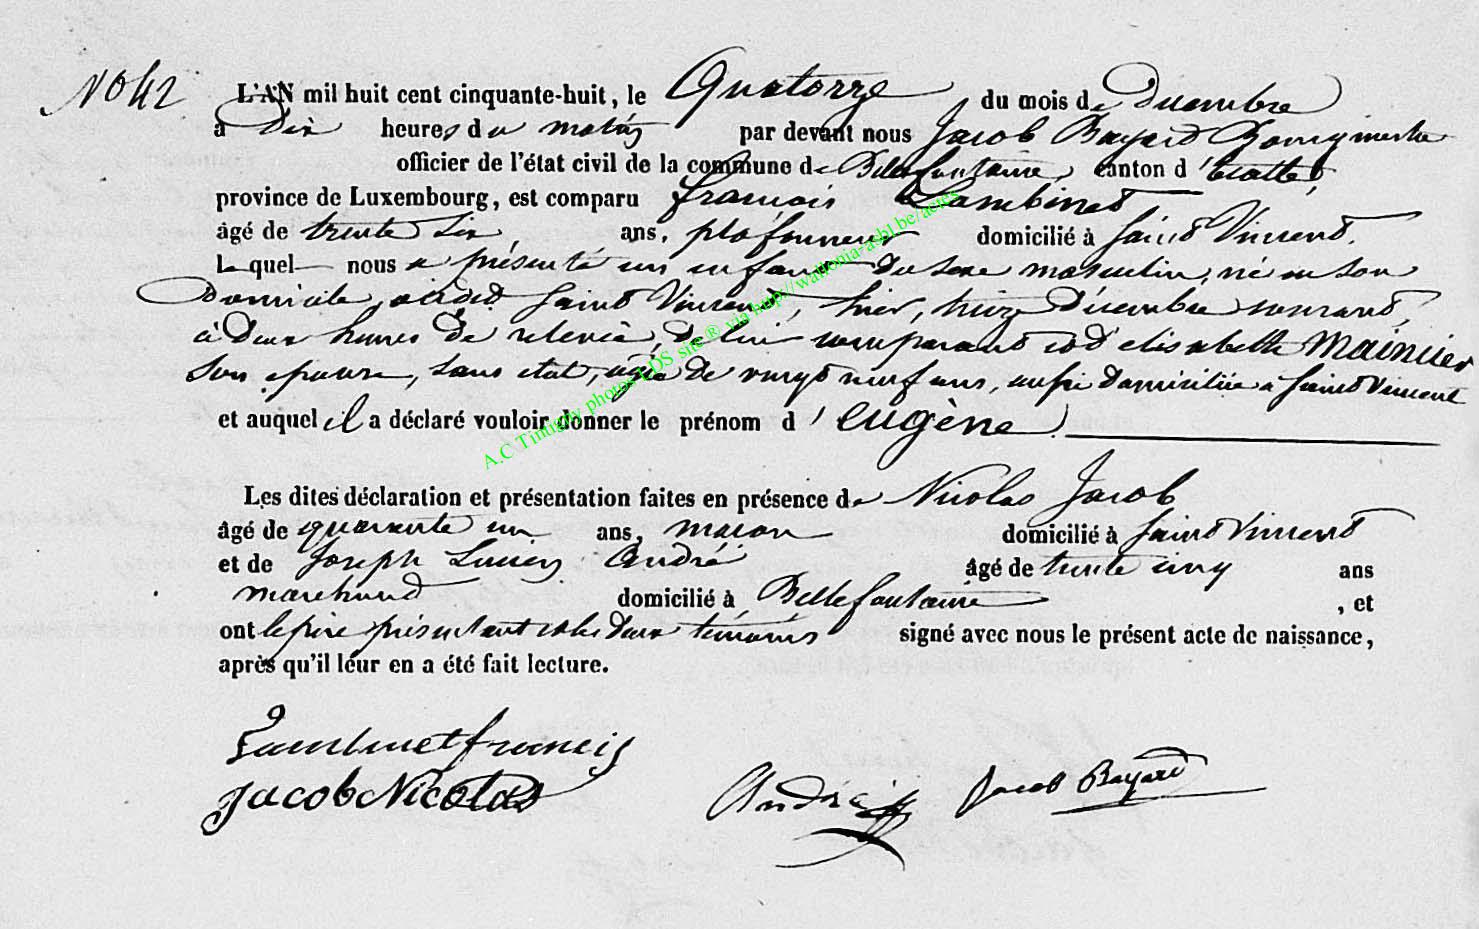 No 42
L'AN mil huit cent cinquante-huit, le Quatorze du mois de Décembre
à Dix heures du matin par devant nous Jacob Bayard Bourgmestre
officier de l'état civil de la commune de Bellefontaine, canton d'Etalle,
province de Luxembourg, est comparu françois Lambinet
âgé de trente six ans, plafonneur domicilié à Saint Vincent,
lequel nous a présenté un enfant du sexe masculin, né en son
Domicile, audit Saint Vincent, hier, treize Décembre courant,
à Deux heures de relevée, de lui comparant et d'elisabette Mainier
Son épouse, sans état, agée de vingt neuf ans, aussi Domiciliée à Saint Vincent
et auquel il a déclaré vouloir donner le prénom d'eugène.
Les dites déclaration et présentation faites en présence de Nicolas Jacob
âgé de quarante un ans, macon domicilié à Saint Vincent
et de Joseph Lucien André âgé de trente cinq ans
marchand domicilié à Bellefontaine, et
ont le père présentant et les deux témoins signé avec nous le présent acte de naissance,
après qu'il leur en a été fait lecture.
Lambinet francis
Jacob Nicolas
André
Jacob Bayard
A.C Tintigny photos LDS site ® via http://wallonia-asbl.be/actes